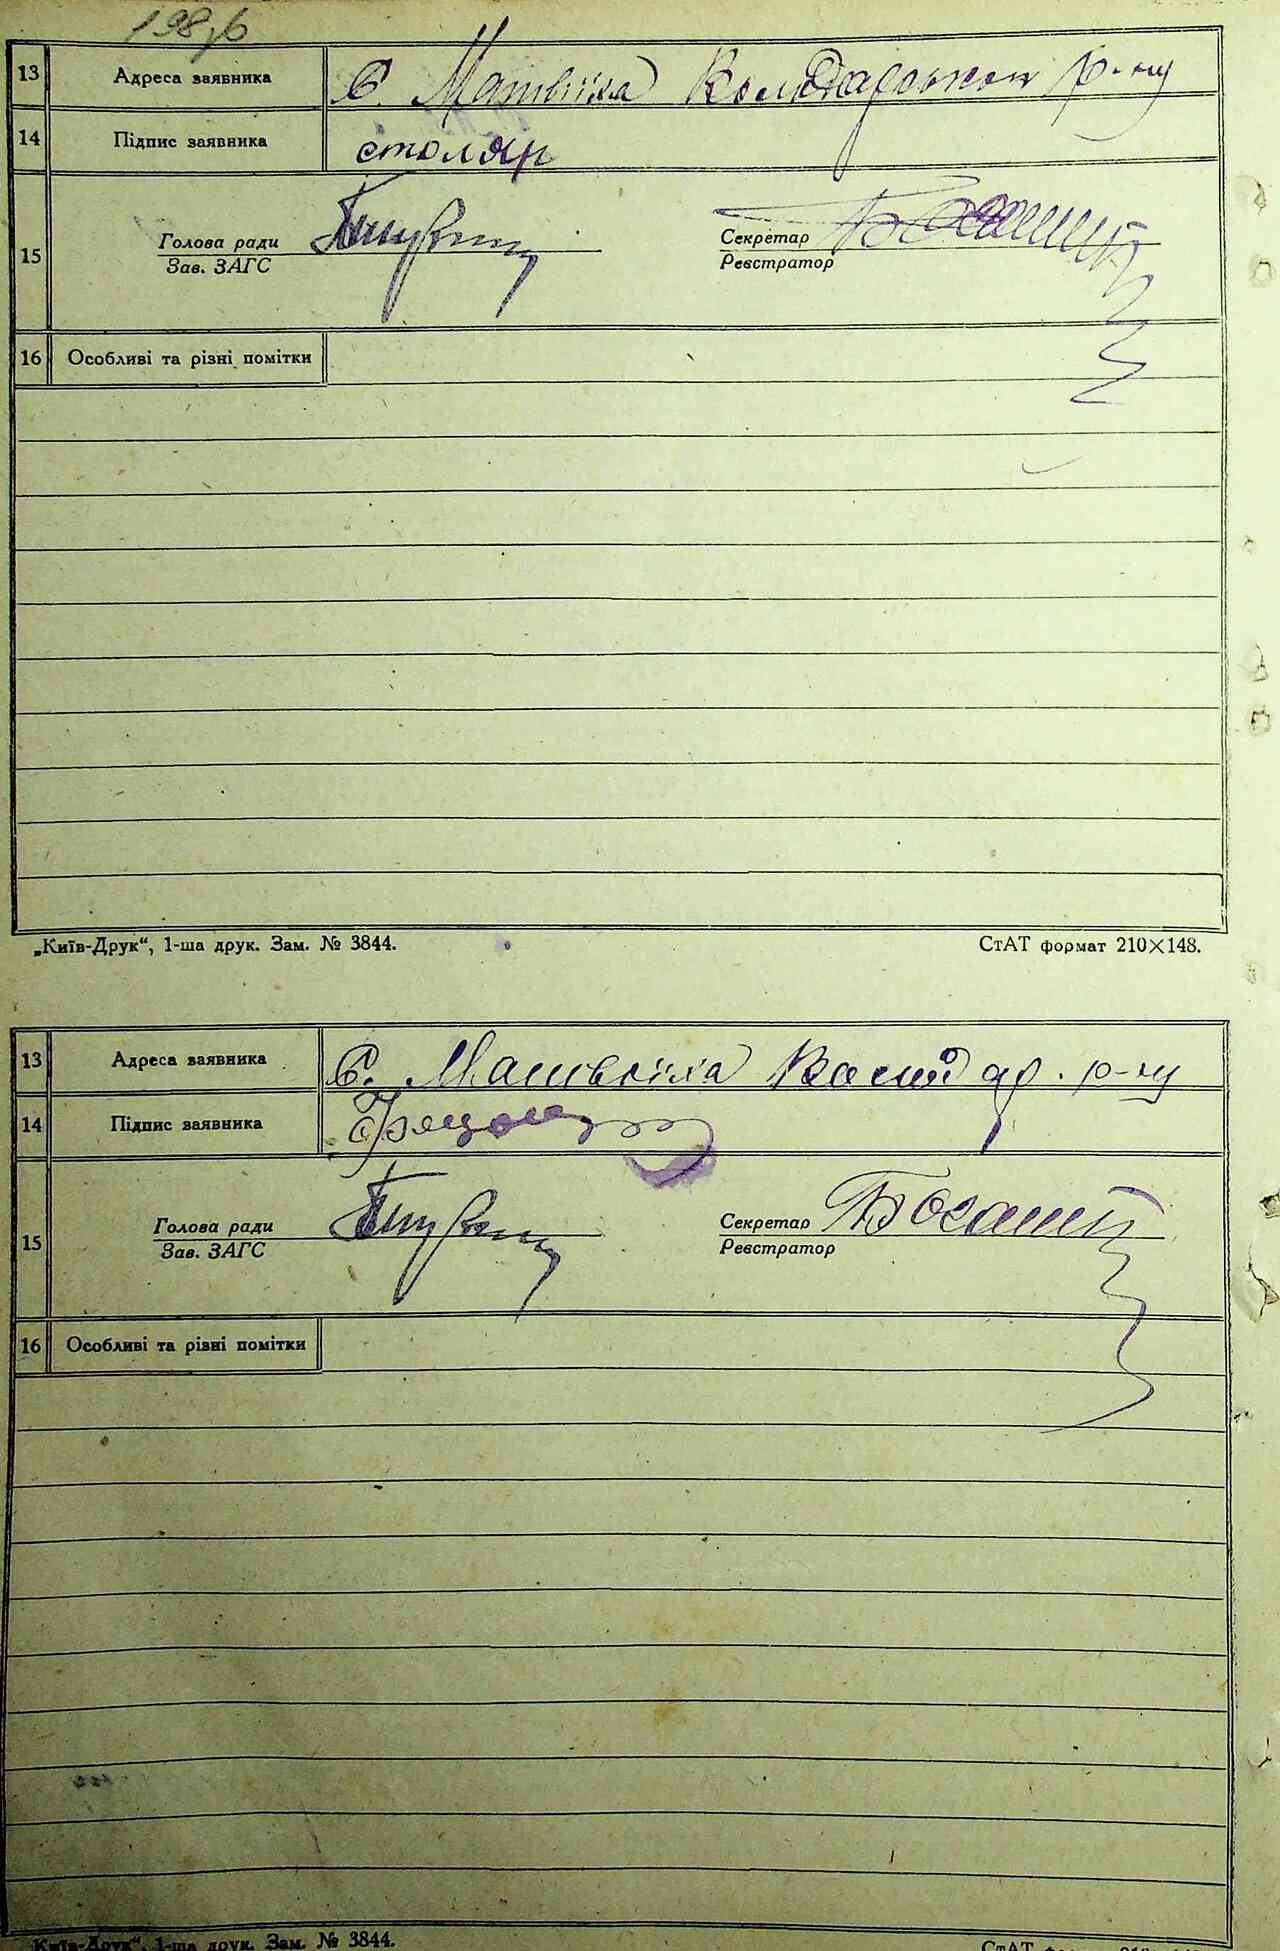 13 Адреса заявника С. Матвіїха Володарського р-ну
14 Підпис заявника столяр
15 Голова ради Секретар
Зав. ЗАГС Реєстратор
16 Особливі та різні помітки
„Київ-Друк“, 1-ша друк. Зам. № 3844. СтАТ формат 210×148.
13 Адреса заявника С. Матвіїха Волод ар. р-ну
14 Підпис заявника
15 Голова ради Секретар
Зав. ЗАГС Реєстратор
16 Особливі та різні помітки
Київ-Друк“, 1-ша друк. Зам. № 3844. СтАТ